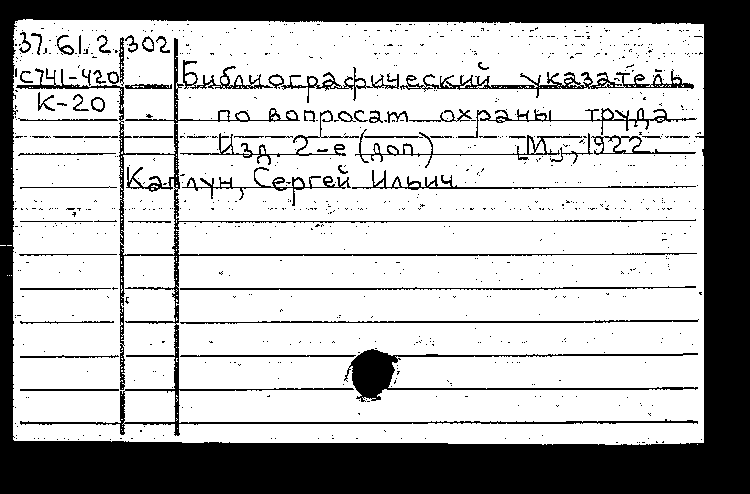 37.61.2. 302
С741-420 Библиографический указатель
К-20 по вопросам охраны труда
Изд. 2-е (доп.) [М.], 1922.
Каплун, Сергей Ильич